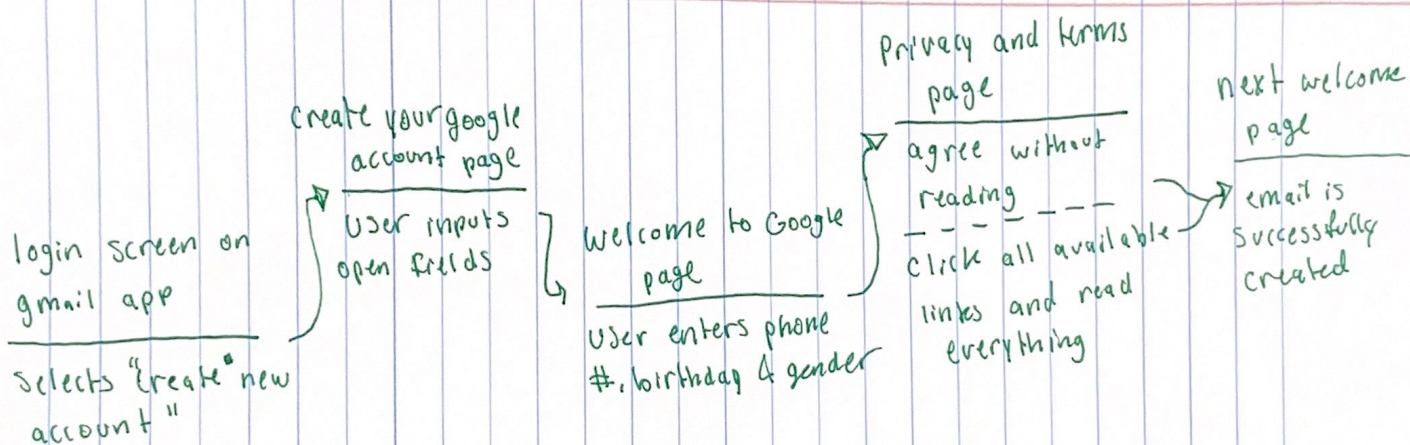 login screen on
gmail app
selects "create" new
account"
create your google
account page
user inputs
open fields
welcome to Google
page
user enters phone
#, birthday & gender
Privacy and terms
page
agree without
reading
click all available
links and read
everything
next welcome
page
email is
successfully
created